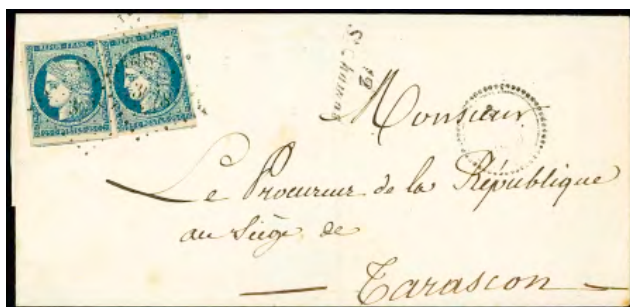 REPUB. FRANC. REPUB. FRANC.
12
St Chamas
Monsieur
Le Procureur de la République
au Siège de
Tarascon